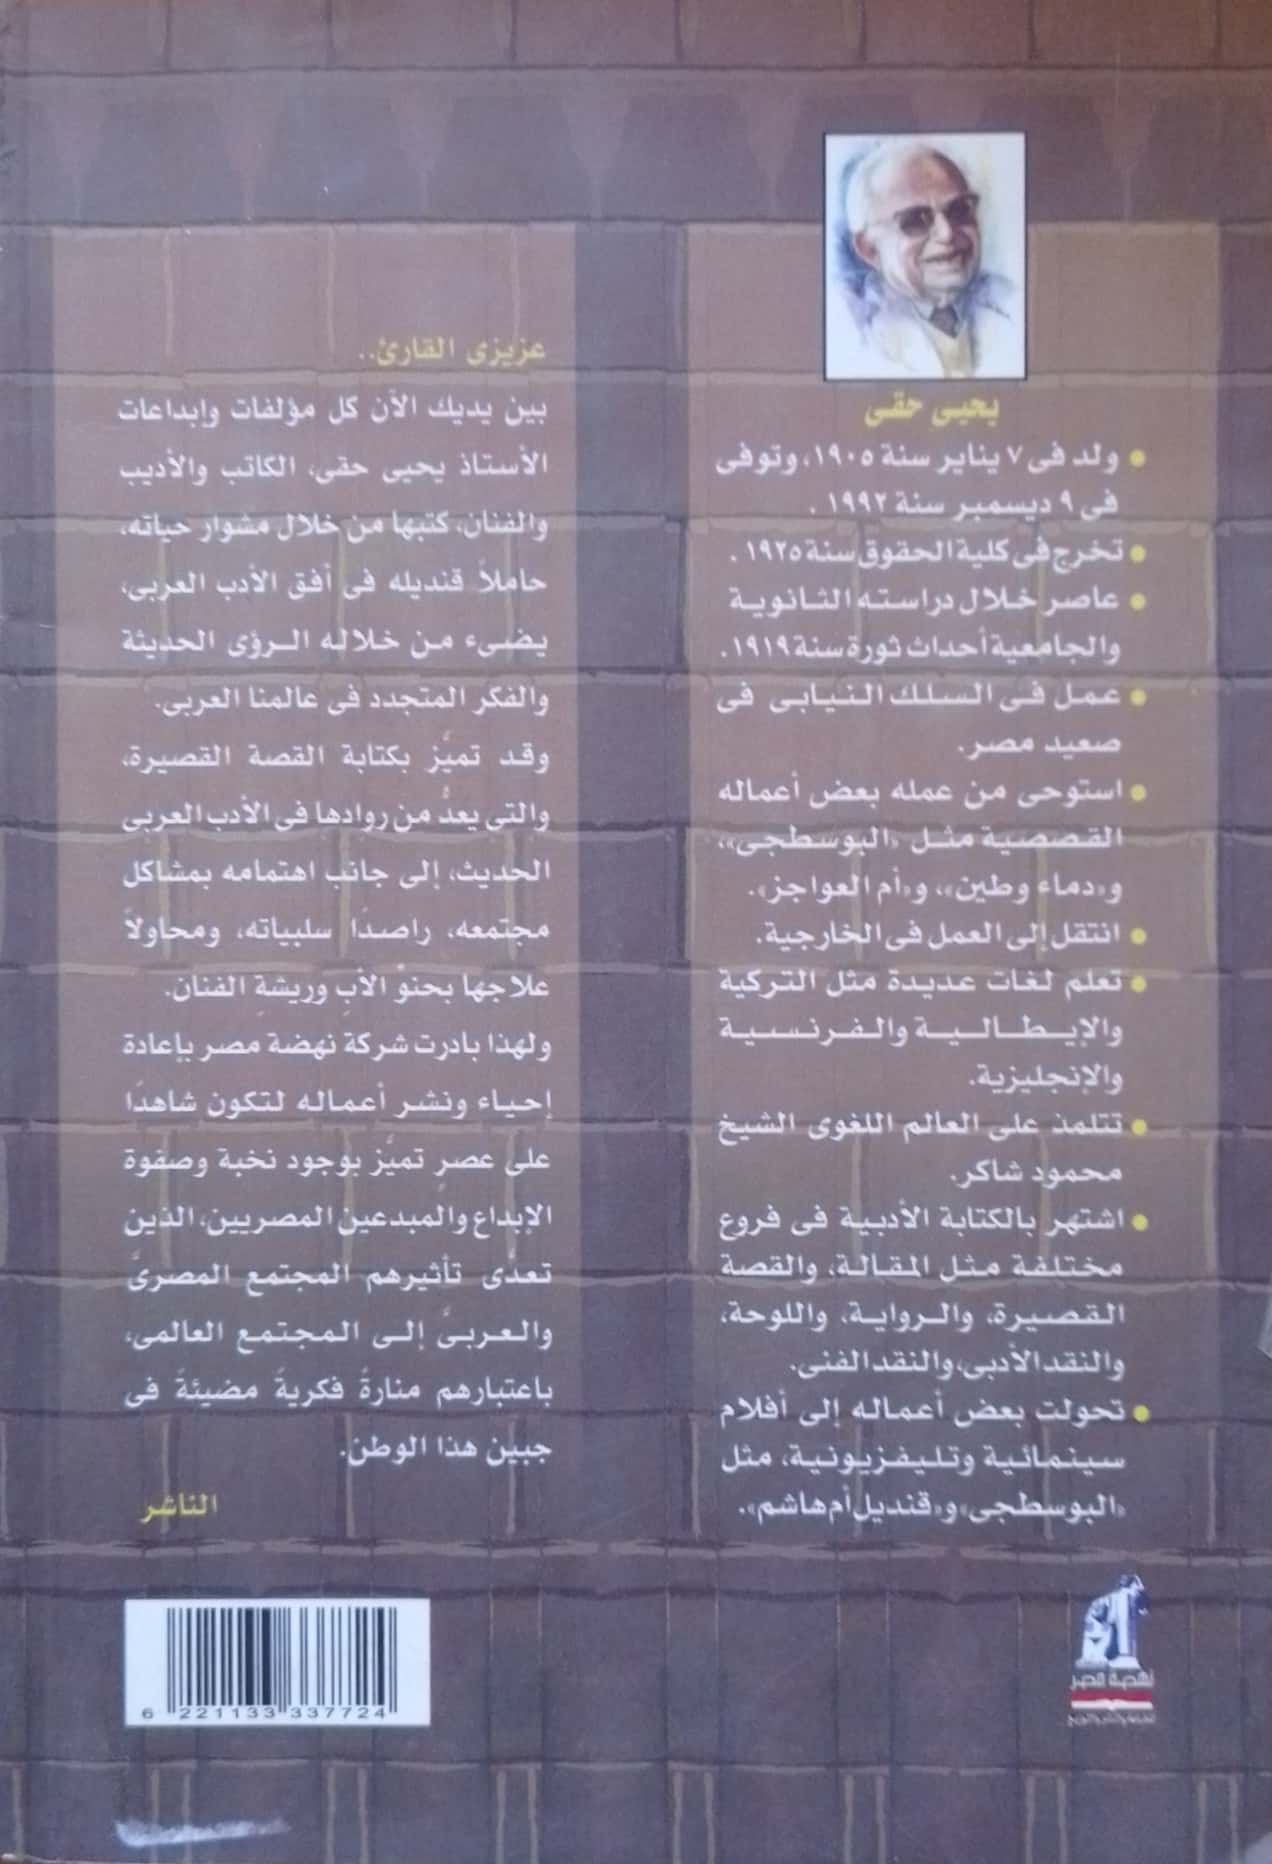 يحيى حقى
● ولد فى ٧ يناير سنة ١٩٠٥، وتوفى
فى ٩ ديسمبر سنة ١٩٩٢ .
● تخرج فى كلية الحقوق سنة ١٩٢٥ .
● عاصر خلال دراسته الثانوية
والجامعية أحداث ثورة سنة ١٩١٩ .
● عمل فى السلك النيابى فى
صعيد مصر.
● استوحى من عمله بعض أعماله
القصصية مثل «البوسطجى»،
و«دماء وطين»، و«أم العواجز».
● انتقل إلى العمل فى الخارجية.
● تعلم لغات عديدة مثل التركية
والإيطالية والفرنسية
والإنجليزية.
● تتلمذ على العالم اللغوى الشيخ
محمود شاكر.
● اشتهر بالكتابة الأدبية فى فروع
مختلفة مثل المقالة، والقصة
القصيرة، والرواية، واللوحة،
والنقد الأدبى، والنقد الفنى.
● تحولت بعض أعماله إلى أفلام
سينمائية وتليفزيونية، مثل
«البوسطجى» و«قنديل أم هاشم».
عزيزى القارئ..
بين يديك الآن كل مؤلفات وإبداعات
الأستاذ يحيى حقى، الكاتب والأديب
والفنان، كتبها من خلال مشوار حياته،
حاملاً قنديله فى أفق الأدب العربى،
يضىء من خلاله الرؤى الحديثة
والفكر المتجدد فى عالمنا العربى.
وقد تميَّز بكتابة القصة القصيرة،
والتى يعدُّ من روادها فى الأدب العربى
الحديث، إلى جانب اهتمامه بمشاكل
مجتمعه، راصدًا سلبياته، ومحاولاً
علاجها بحنوِّ الأبِ وريشةِ الفنان.
ولهذا بادرت شركة نهضة مصر بإعادة
إحياء ونشر أعماله لتكون شاهدًا
على عصرٍ تميَّز بوجود نخبة وصفوة
الإبداع والمبدعين المصريين، الذين
تعدَّى تأثيرهم المجتمع المصرىَّ
والعربىَّ إلى المجتمع العالمى،
باعتبارهم منارةً فكريةً مضيئةً فى
جبين هذا الوطن.
الناشر
6 221133 337724
نهضة مصر
للطباعة والنشر والتوزيع